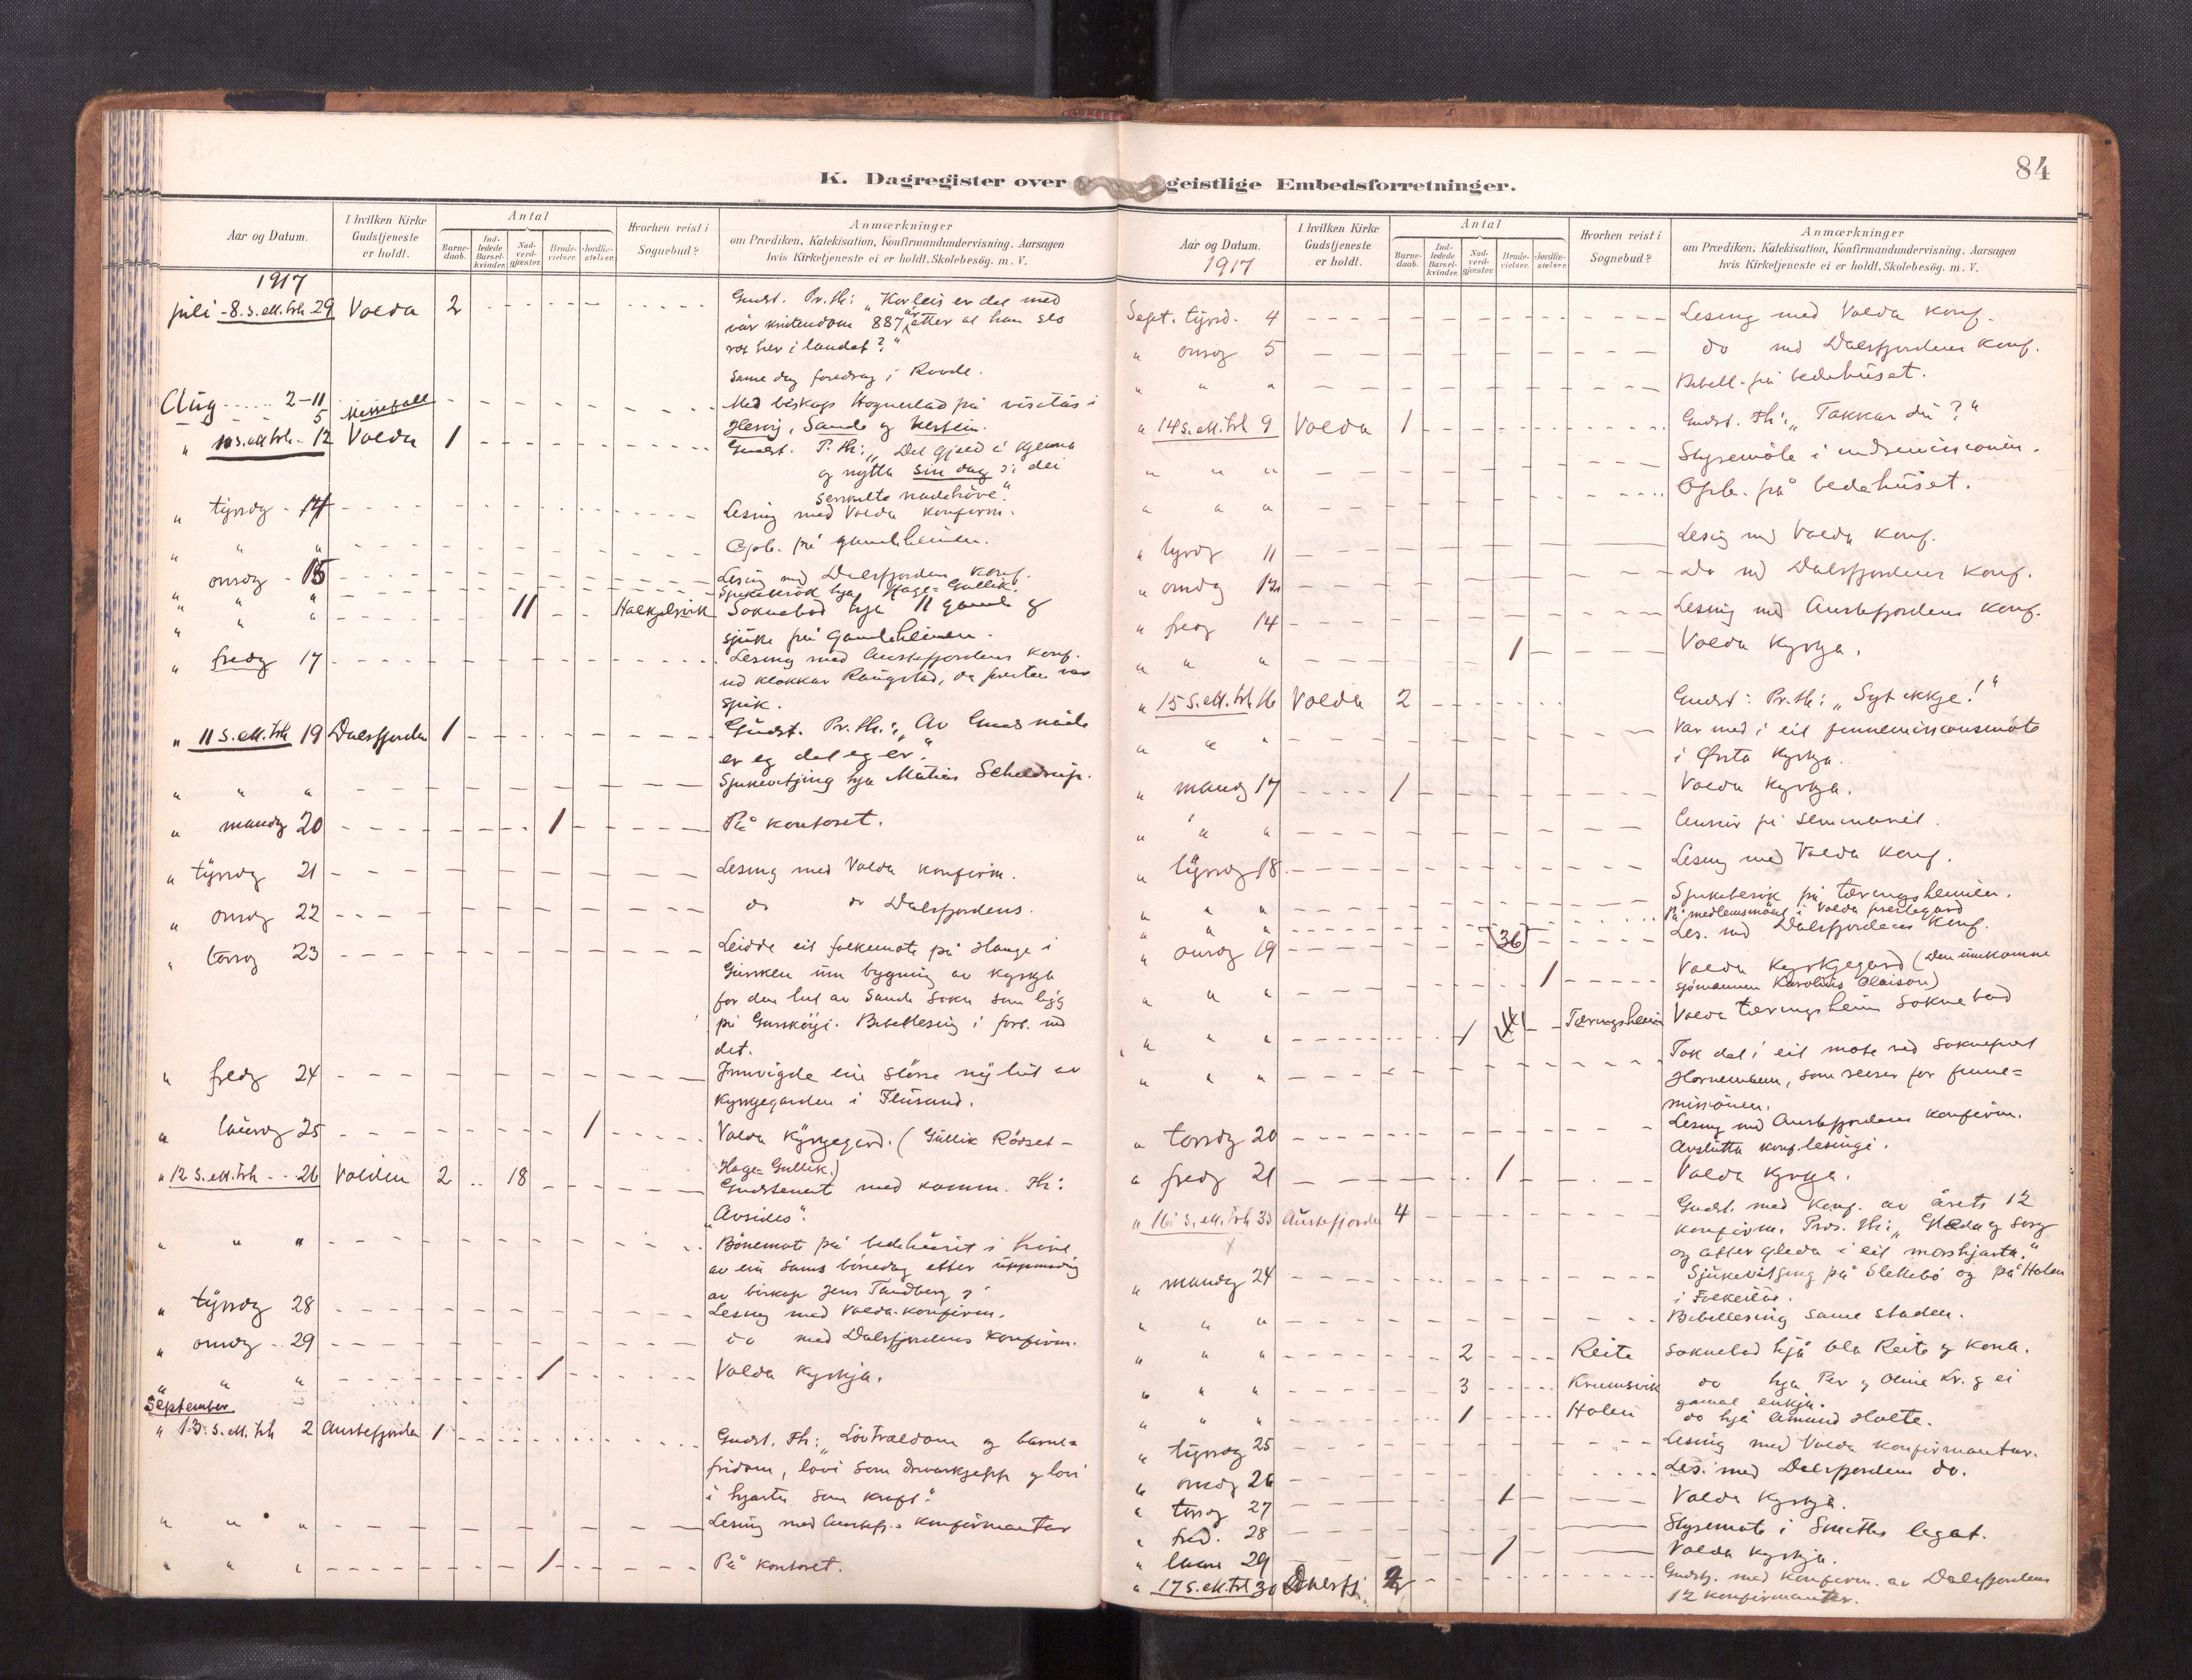 84
K. Dagregister over geistlige Embedsforretninger.
Aar og Datum.
I hvilken Kirke Gudstjeneste er holdt.
Antal
Barne-daab.
Ind-ledede Barsel-kvinder.
Nad-verd-gjæster.
Brude-vielser.
Jordfæ-stelser.
Hvorhen reist i Sognebud?
Anmærkninger
om Prædiken, Katekisation, Konfirmandundervisning, Aarsagen
hvis Kirketjeneste ei er holdt, Skolebesög. m. V.
1917
juli - 8. s. ett. trh. 29 Volda 2 Gudst. Pr. th: "Korleis er det med
vår kristendom 887 år etter at han slo
rot her i landet?"
Same dag foredrag i Rovde.
Aug 2-11 Med biskop Hognestad på visitas i
" 5 Messefall Herøy, Sande og
" 10 s. ett. trh. 12 Volda 1 Gudst. P. th: "Det gjeld å kjenna
og nytta sin dag i dei
serskilte nådehøve."
" tysdg 14 Lesing med Volda konfirm.
" " " Opb. på gamleheimen.
" onsdg 15 Lesing med Dalsfjorden konf.
" " " Sjukebesök hja Hage-Gullik.
" " " 11 Haekjelsvik Soknebod hja 11 gamle og
sjuke på Gamleheimen.
" fredg 17 Lesing med Austefjordens konf.
ved klokkar Raugstad, da presten var
sjuk.
" 11 s. ett. trh 19 Dalsfjorden 1 Gudst. Pr. th: "Av Guds nåde
er eg det eg er."
" " " Sjukevitjing hja Matias Scheldrup.
" mandg 20 1 På kontoret.
" tysdg 21 Lesing med Volda konfirm.
" onsdg 22 do do Dalsfjordens.
" torsdg 23 Leidde eit folkemøte på Hauge i
Gursken um bygning av kyrkja
for den lut av Sande sokn som ligg
på Gurskøyi. Bibellesing i forb. med
det.
" fredg 24 Innvigde ein större ny lut av
kyrkjegarden i Flusund.
" laurdg 25 1 Volda Kyrkjegard. (Gullik Rösset -
Hage-Gullik.)
" 12 s. ett. trh 26 Volden 2 18 Gudstenest med komm. Th:
"Avsides".
" " " Bönemøte på bedehuset i
av ein sams bönedag etter uppmoding
av biskop Jens Tandberg
" tysdg 28 Lesing med Volda-konfirm.
" onsdg 29 do med Dalsfjordens konfirm.
" " " 1 Volda Kyrkja.
September
" 13. s. ett. trh 2 Austefjorden 1 Gudst. Th: "Lovtrældom og barne-
fridom, lovi som drivarkjepp og lovi
i hjarta som kraft."
" " " Lesing med Austefj.s konfirmantar
" " " 1 På kontoret.
Aar og Datum.
1917
I hvilken Kirke Gudstjeneste er holdt.
Antal
Barne-daab.
Ind-ledede Barsel-kvinder.
Nad-verd-gjæster.
Brude-vielser.
Jordfæ-stelser.
Hvorhen reist i Sognebud?
Anmærkninger
om Prædiken, Katekisation, Konfirmandundervisning, Aarsagen
hvis Kirketjeneste ei er holdt, Skolebesög. m. V.
Sept. tysd. 4 Lesing med Volda konf.
" onsdg 5 do med Dalsfjordens konf.
" " " Bibell. på bedehuset.
" 14 s. ett. trh 9 Volda 1 Gudst. Th: "Takkar du?"
" " " Styremöte i indremisionen.
" " " Opb. på bedehuset.
" tysdg 11 Lesing med Volda konf.
" onsdg 12 Do med Dalsfjordens konf.
" fredg 14 Lesing med Austefjordens konf.
" " " 1 Volda kyrkja.
" 15 s. ett. trh 16 Volda 2 Gudst: Pr. th: "Syt ikkje!"
" " " Var med i eit finnemisionsmöte
i Ørsta kyrkja.
" mandg 17 1 Volda kyrkja.
" " " på seminariet.
" tysdg 18 Lesing med Volda konf.
" " " Sjukebesök på tæringsheimen.
" " " På medlemsmöte i Volda prestegard
" onsdg 19 36 Les. med Dalsfjordens konf.
" " " 1 Volda Kyrkjegard (Den umkomne
sjömannen Karolius Olaison)
" " " 1 Tæringsheim Volda tæringsheim Soknebod
" " " Tok del i eit möte med sokneprest
Hornemann, som reiser for finne-
missionen.
" torsdg 20 Lesing med Austefjordens konfirm.
Avslutta konf.lesingi.
" fredg 21 1 Volda Kyrkja.
" 16 s. ett. trh Austefjorden 4 Gudst. med konf. av årets 12
konfirm. Pr. th: "Gleda og sorg
og atter gleda i eit morshjarta."
" mandg 24 Sjukevitjing på Slettebö og på Holen
i Folkestad.
" " " Bibellesing same staden.
" " " 2 Reite Soknebod hjå Ola Reite og kona.
" " " 3 Krumsvik do hja Per og Oline Kr. og ei
gamal enkja.
" " " 1 Holen do hjå Amund Holte.
" tysdg 25 Lesing med Volda konfirmantar.
" onsdg 26 Les. med Dalsfjordens do.
" torsdg 27 1 Volda Kyrkja.
" fred. 28 Styremöte i Smiths legat.
" laur 29 1 Volda kyrkja.
" 17 s. ett. trh 30 Dalsfj. 2 Gudstj. med konfirm. av Dalsfjordens
12 konfirmanter.